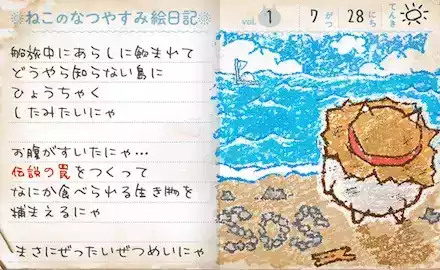 ねこのなつやすみ絵日記
vol. 1 7がつ 28にち てんき
船旅中にあらしに飲まれて
どうやら知らない島に
ひょうちゃく
したみたいにゃ
お腹がすいたにゃ…
伝説の罠をつくって
なにか食べられる生き物を
捕まえるにゃ
まさにぜったいぜつめいにゃ
SOS